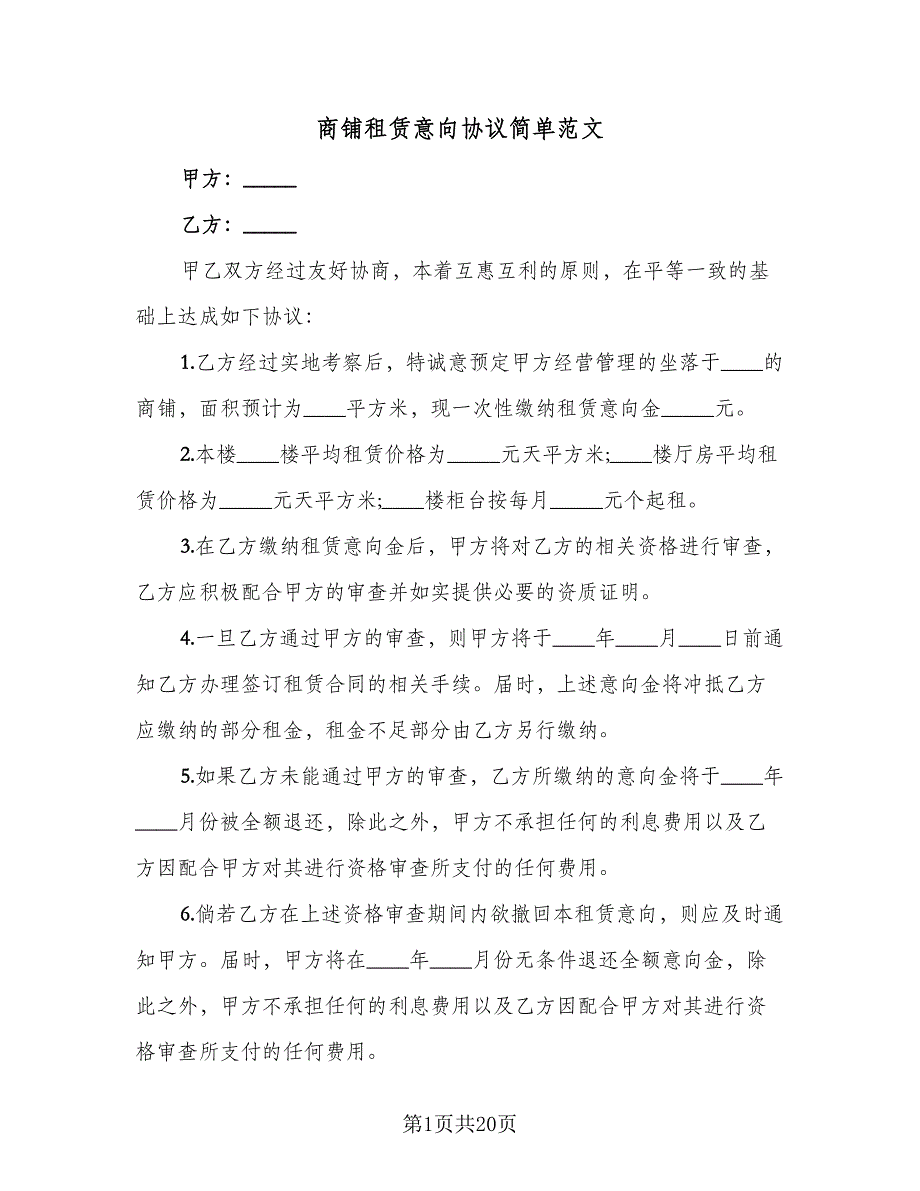 商铺租赁意向协议简单范文
甲方：_____
乙方：_____
甲乙双方经过友好协商，本着互惠互利的原则，在平等一致的基
础上达成如下协议：
1.乙方经过实地考察后，特诚意预定甲方经营管理的坐落于____的
商铺，面积预计为____平方米，现一次性缴纳租赁意向金_____元。
2.本楼____楼平均租赁价格为_____元天平方米;____楼厅房平均租
赁价格为_____元天平方米;____楼柜台按每月_____元个起租。
3.在乙方缴纳租赁意向金后，甲方将对乙方的相关资格进行审查，
乙方应积极配合甲方的审查并如实提供必要的资质证明。
4.一旦乙方通过甲方的审查，则甲方将于____年____月____日前通
知乙方办理签订租赁合同的相关手续。届时，上述意向金将冲抵乙方
应缴纳的部分租金，租金不足部分由乙方另行缴纳。
5.如果乙方未能通过甲方的审查，乙方所缴纳的意向金将于____年
____月份被全额退还，除此之外，甲方不承担任何的利息费用以及乙
方因配合甲方对其进行资格审查所支付的任何费用。
6.倘若乙方在上述资格审查期间内欲撤回本租赁意向，则应及时通
知甲方。届时，甲方将在____年____月份无条件退还全额意向金，除
此之外，甲方不承担任何的利息费用以及乙方因配合甲方对其进行资
格审查所支付的任何费用。
第1页共20页